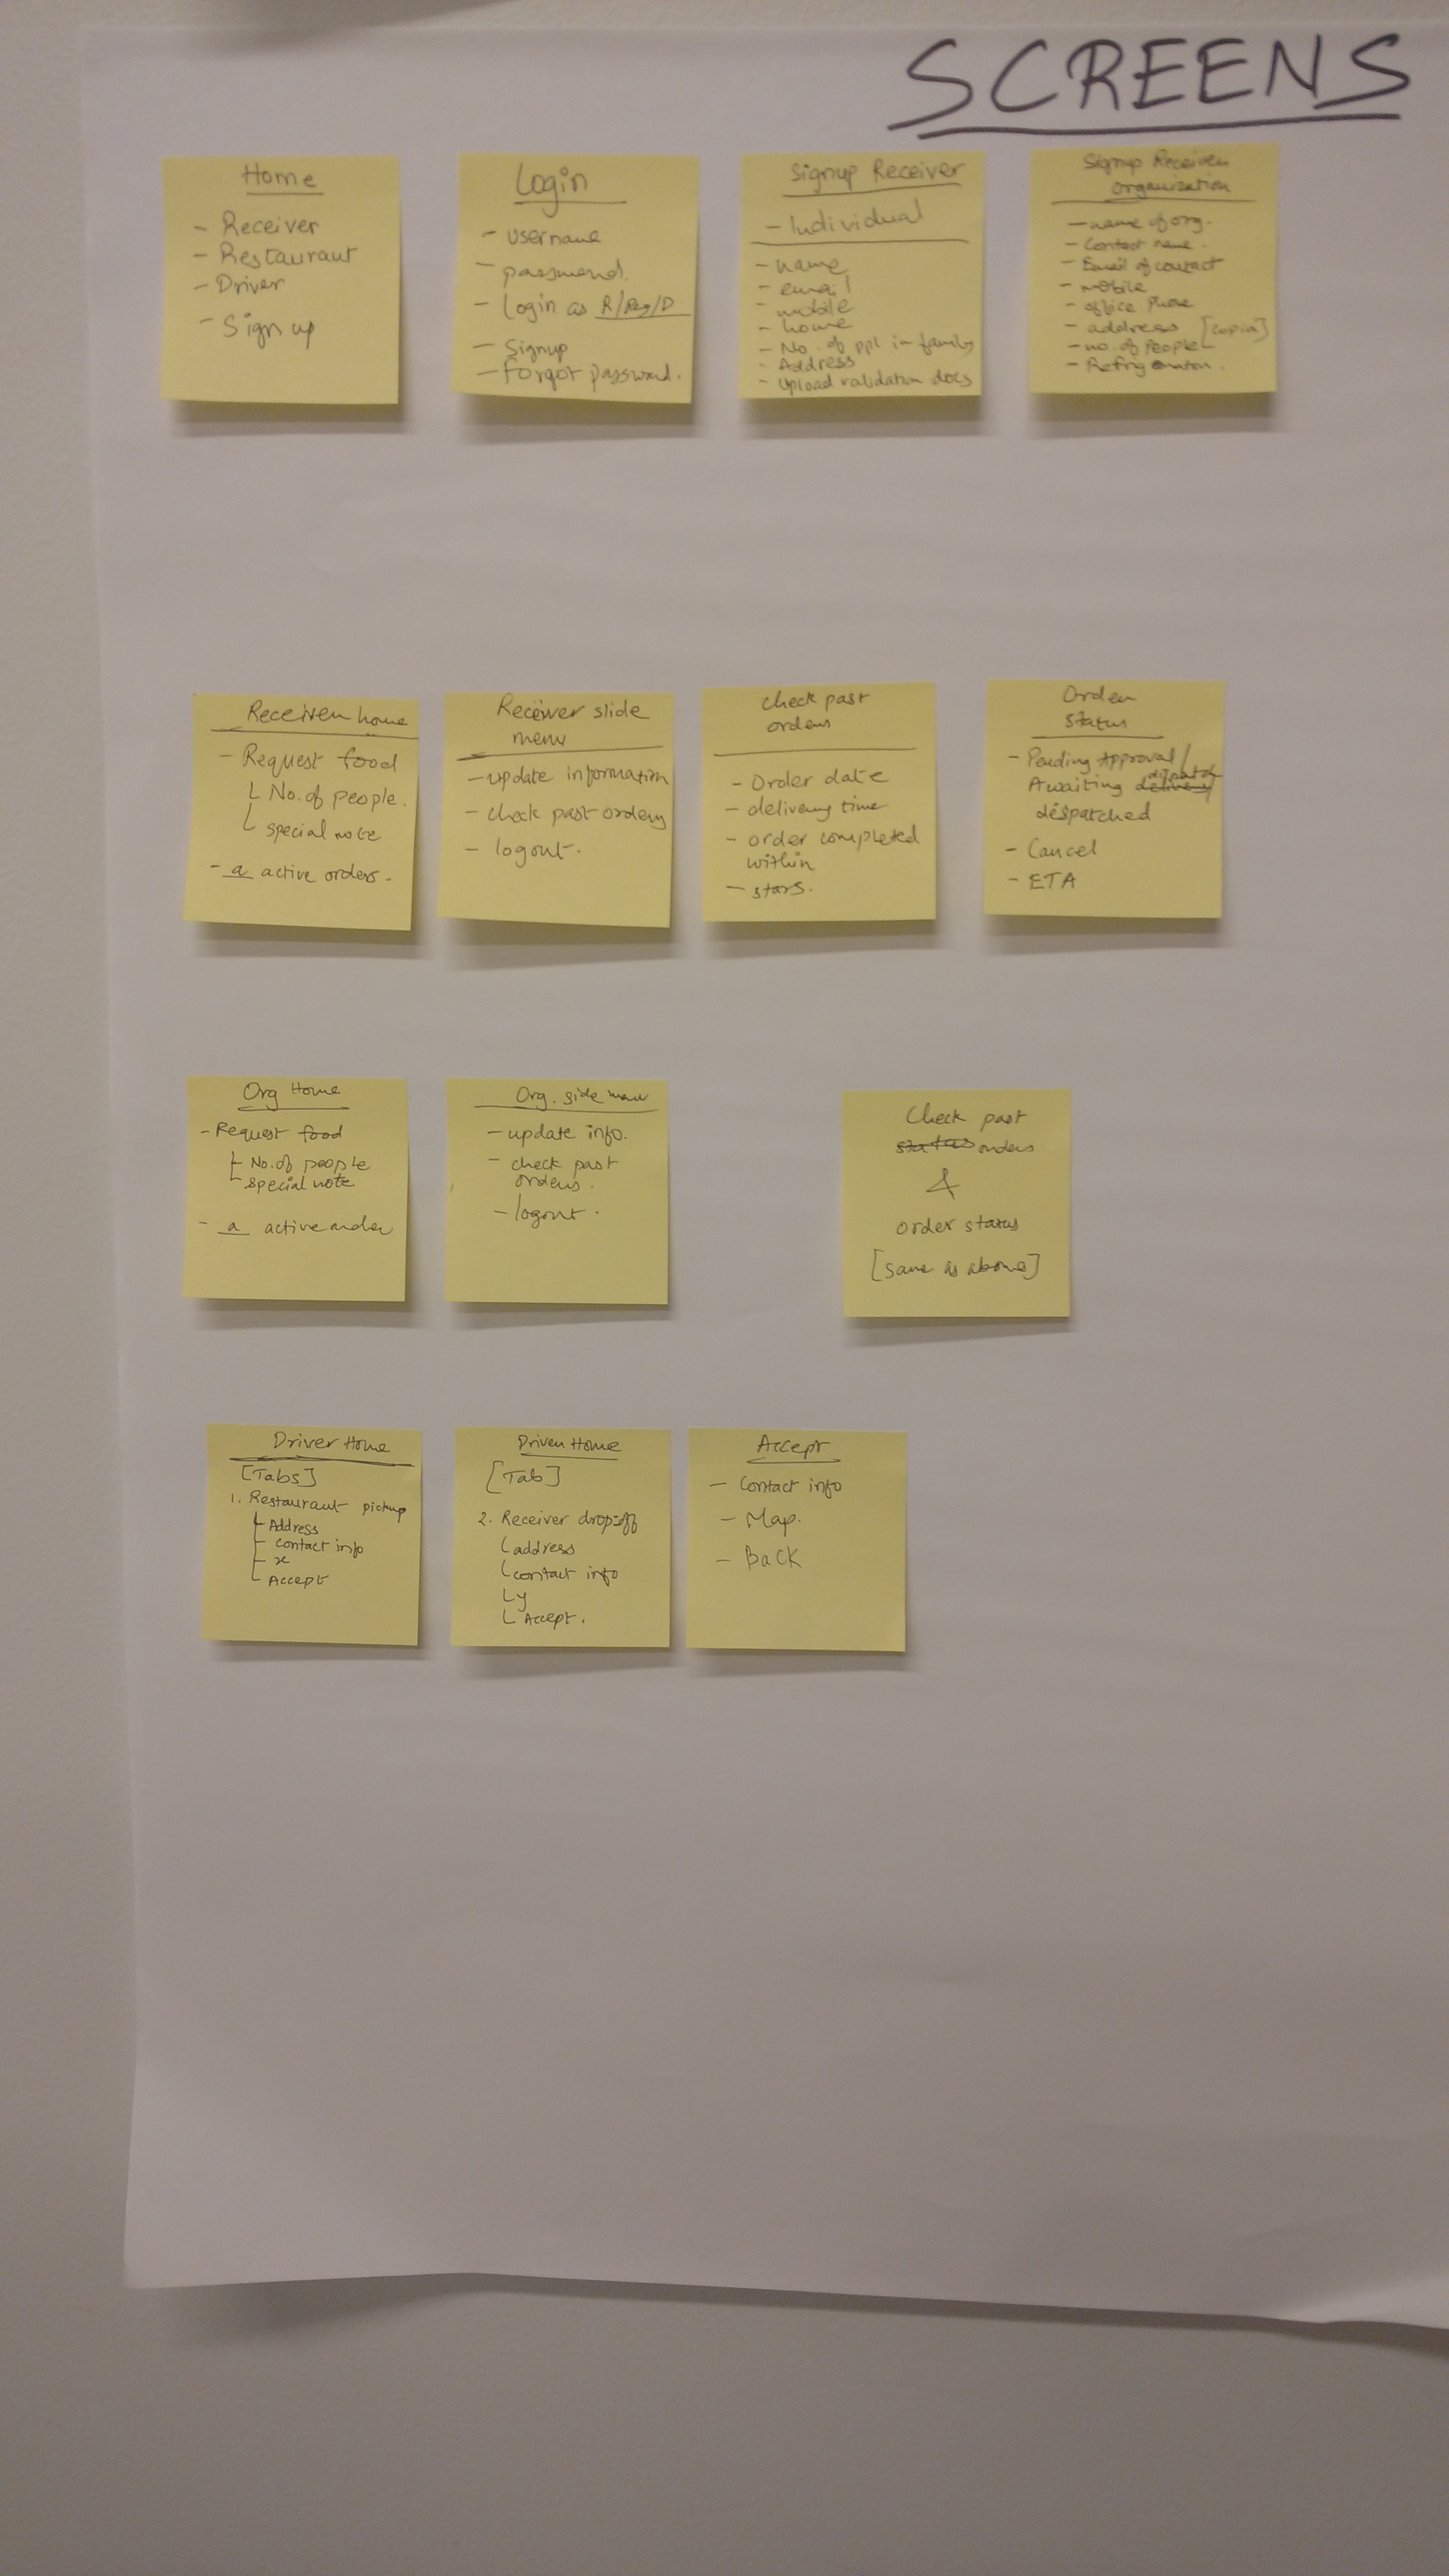 SCREENS
Home
- Receiver
- Restaurant
- Driver
- Sign up
Login
- username
- password.
- Login as R/ /D
- Signup
- Forgot password.
Signup Receiver
- Individual
- name
- email
- mobile
- home
- No. of ppl in family
- Address
- Upload validation docs
Signup Receiver
organization
- name of org.
- Contact name.
- Email of contact
- mobile
- office phone
- address [copia]
- no. of people
- Refrigeration.
Receiver home
- Request food
└ No. of people.
└ special note
- a active orders.
Receiver slide
menu
- update information
- check past orders
- logout.
check past
orders
- Order date
- delivery time
- order completed
within
- stars.
Order
status
- Pending Approval/
Awaiting dispatch
despatched
- Cancel
- ETA
Org Home
- Request food
├ No. of people
└ special note
- a active order
Org. side menu
- update info.
- check past
orders.
- logout.
Check past
status orders
&
order status
[same as above]
Driver Home
[Tabs]
1. Restaurant pickup
├ Address
├ contact info
├ x
└ Accept
Driver Home
[Tab]
2. Receiver drop-off
└ address
└ contact info
└ y
└ Accept.
Accept
- Contact info
- Map.
- Back